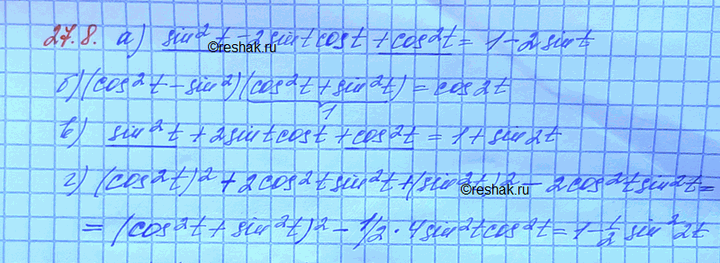 27.8. а) sin²t - 2sint cost + cos²t = 1 - 2sint
©reshak.ru
б) (cos²t - sin²)(cos²t + sin²t) = cos2t
1
в) sin²t + 2sint cost + cos²t = 1 + sin2t
г) (cos²t)² + 2cos²t sin²t + (sin²t)² - 2cos²t sin²t =
©reshak.ru
= (cos²t + sin²t)² - 1/2 · 4sin²t cos²t = 1 - 1/2 sin²2t